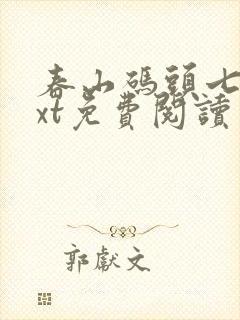 春山碼頭七
xt免費閱讀
郭獻文